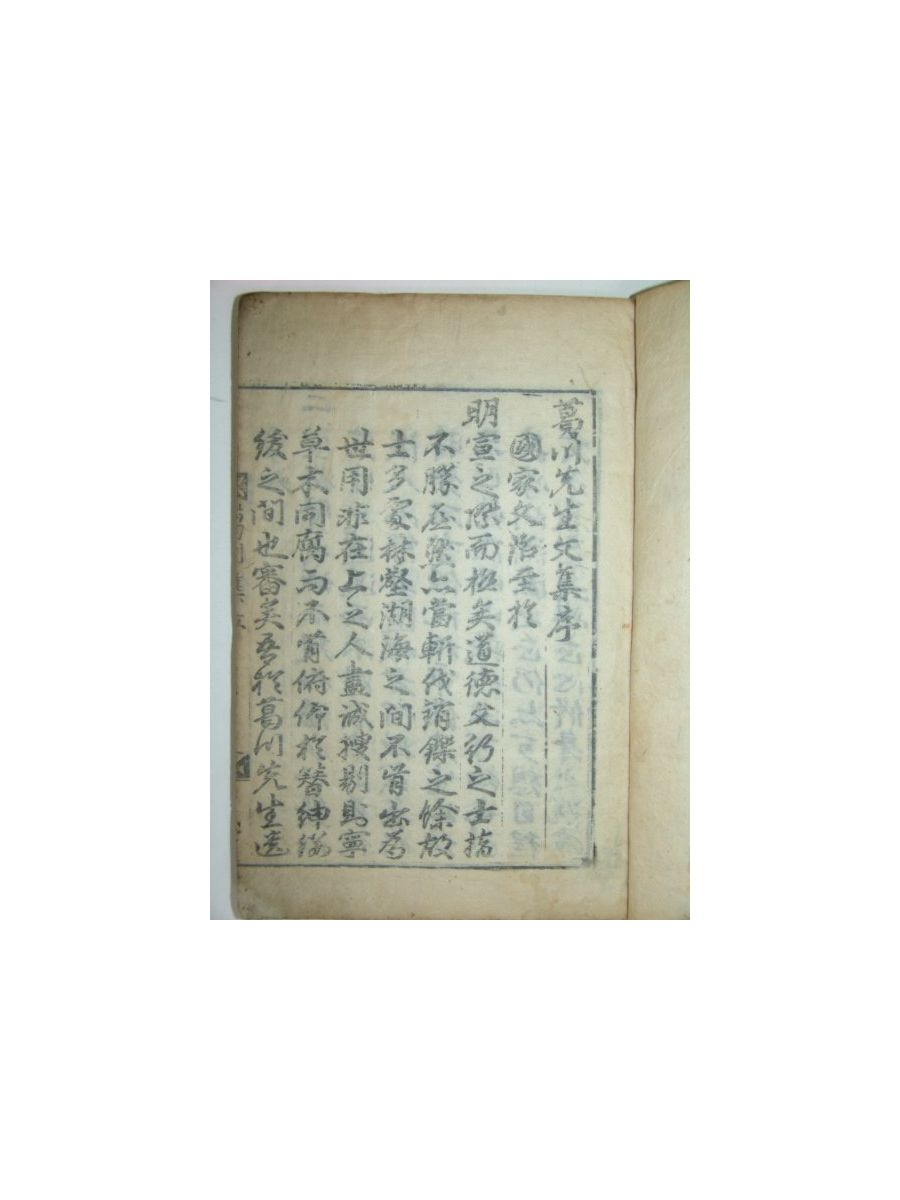 葛川先生文集序
國家文治至於
明宣之際而極矣道德文行之士指
不勝屈然亦當斬伐銷鑠之餘故
士多家林壑湖海之間不肯出爲
世用非在上之人盡誠搜剔則寧
草木同腐而不肯俯仰於簪紳綏
綏之間也審矣吾於葛川先生遺